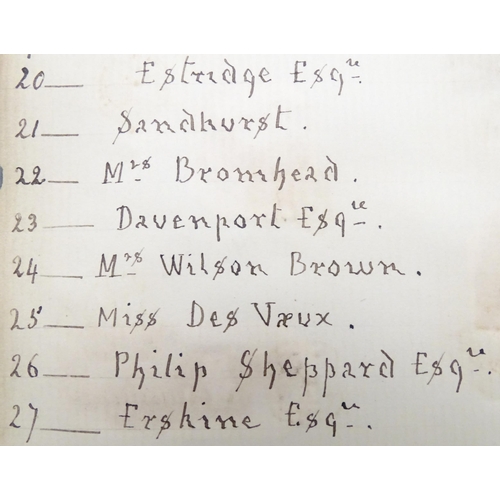 20 — Estridge Esqre.
21 — Sandhurst.
22 — Mrs Bromhead.
23 — Davenport Esqre.
24 — Mrs Wilson Brown.
25 — Miss Des Vœux.
26 — Philip Sheppard Esqre.
27 — Erskine Esqre.